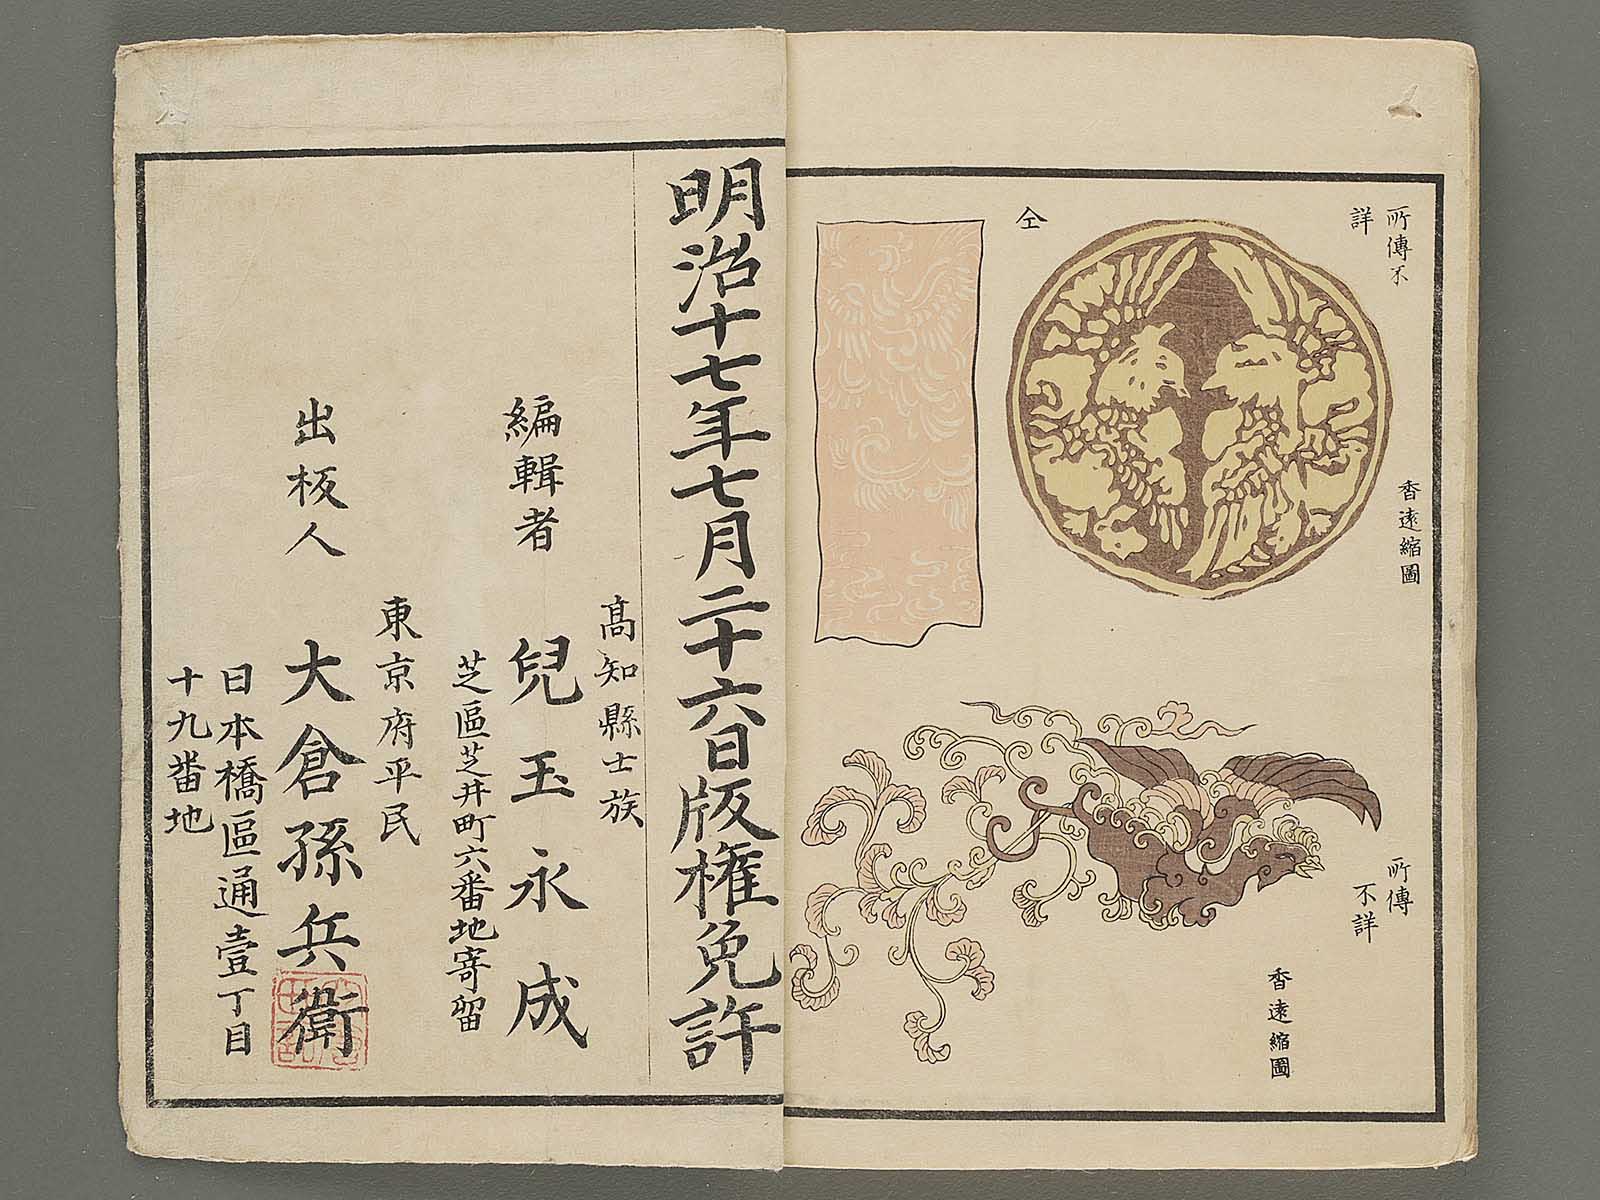 所傳不
詳
香遠縮圖
仝
所傳
不詳
香遠縮圖
明治十七年七月二十六日版權免許
高知縣士族
編輯者 兒玉永成
芝區芝井町六番地寄留
東京府平民
出板人 大倉孫兵衛
日本橋區通壹丁目
十九番地